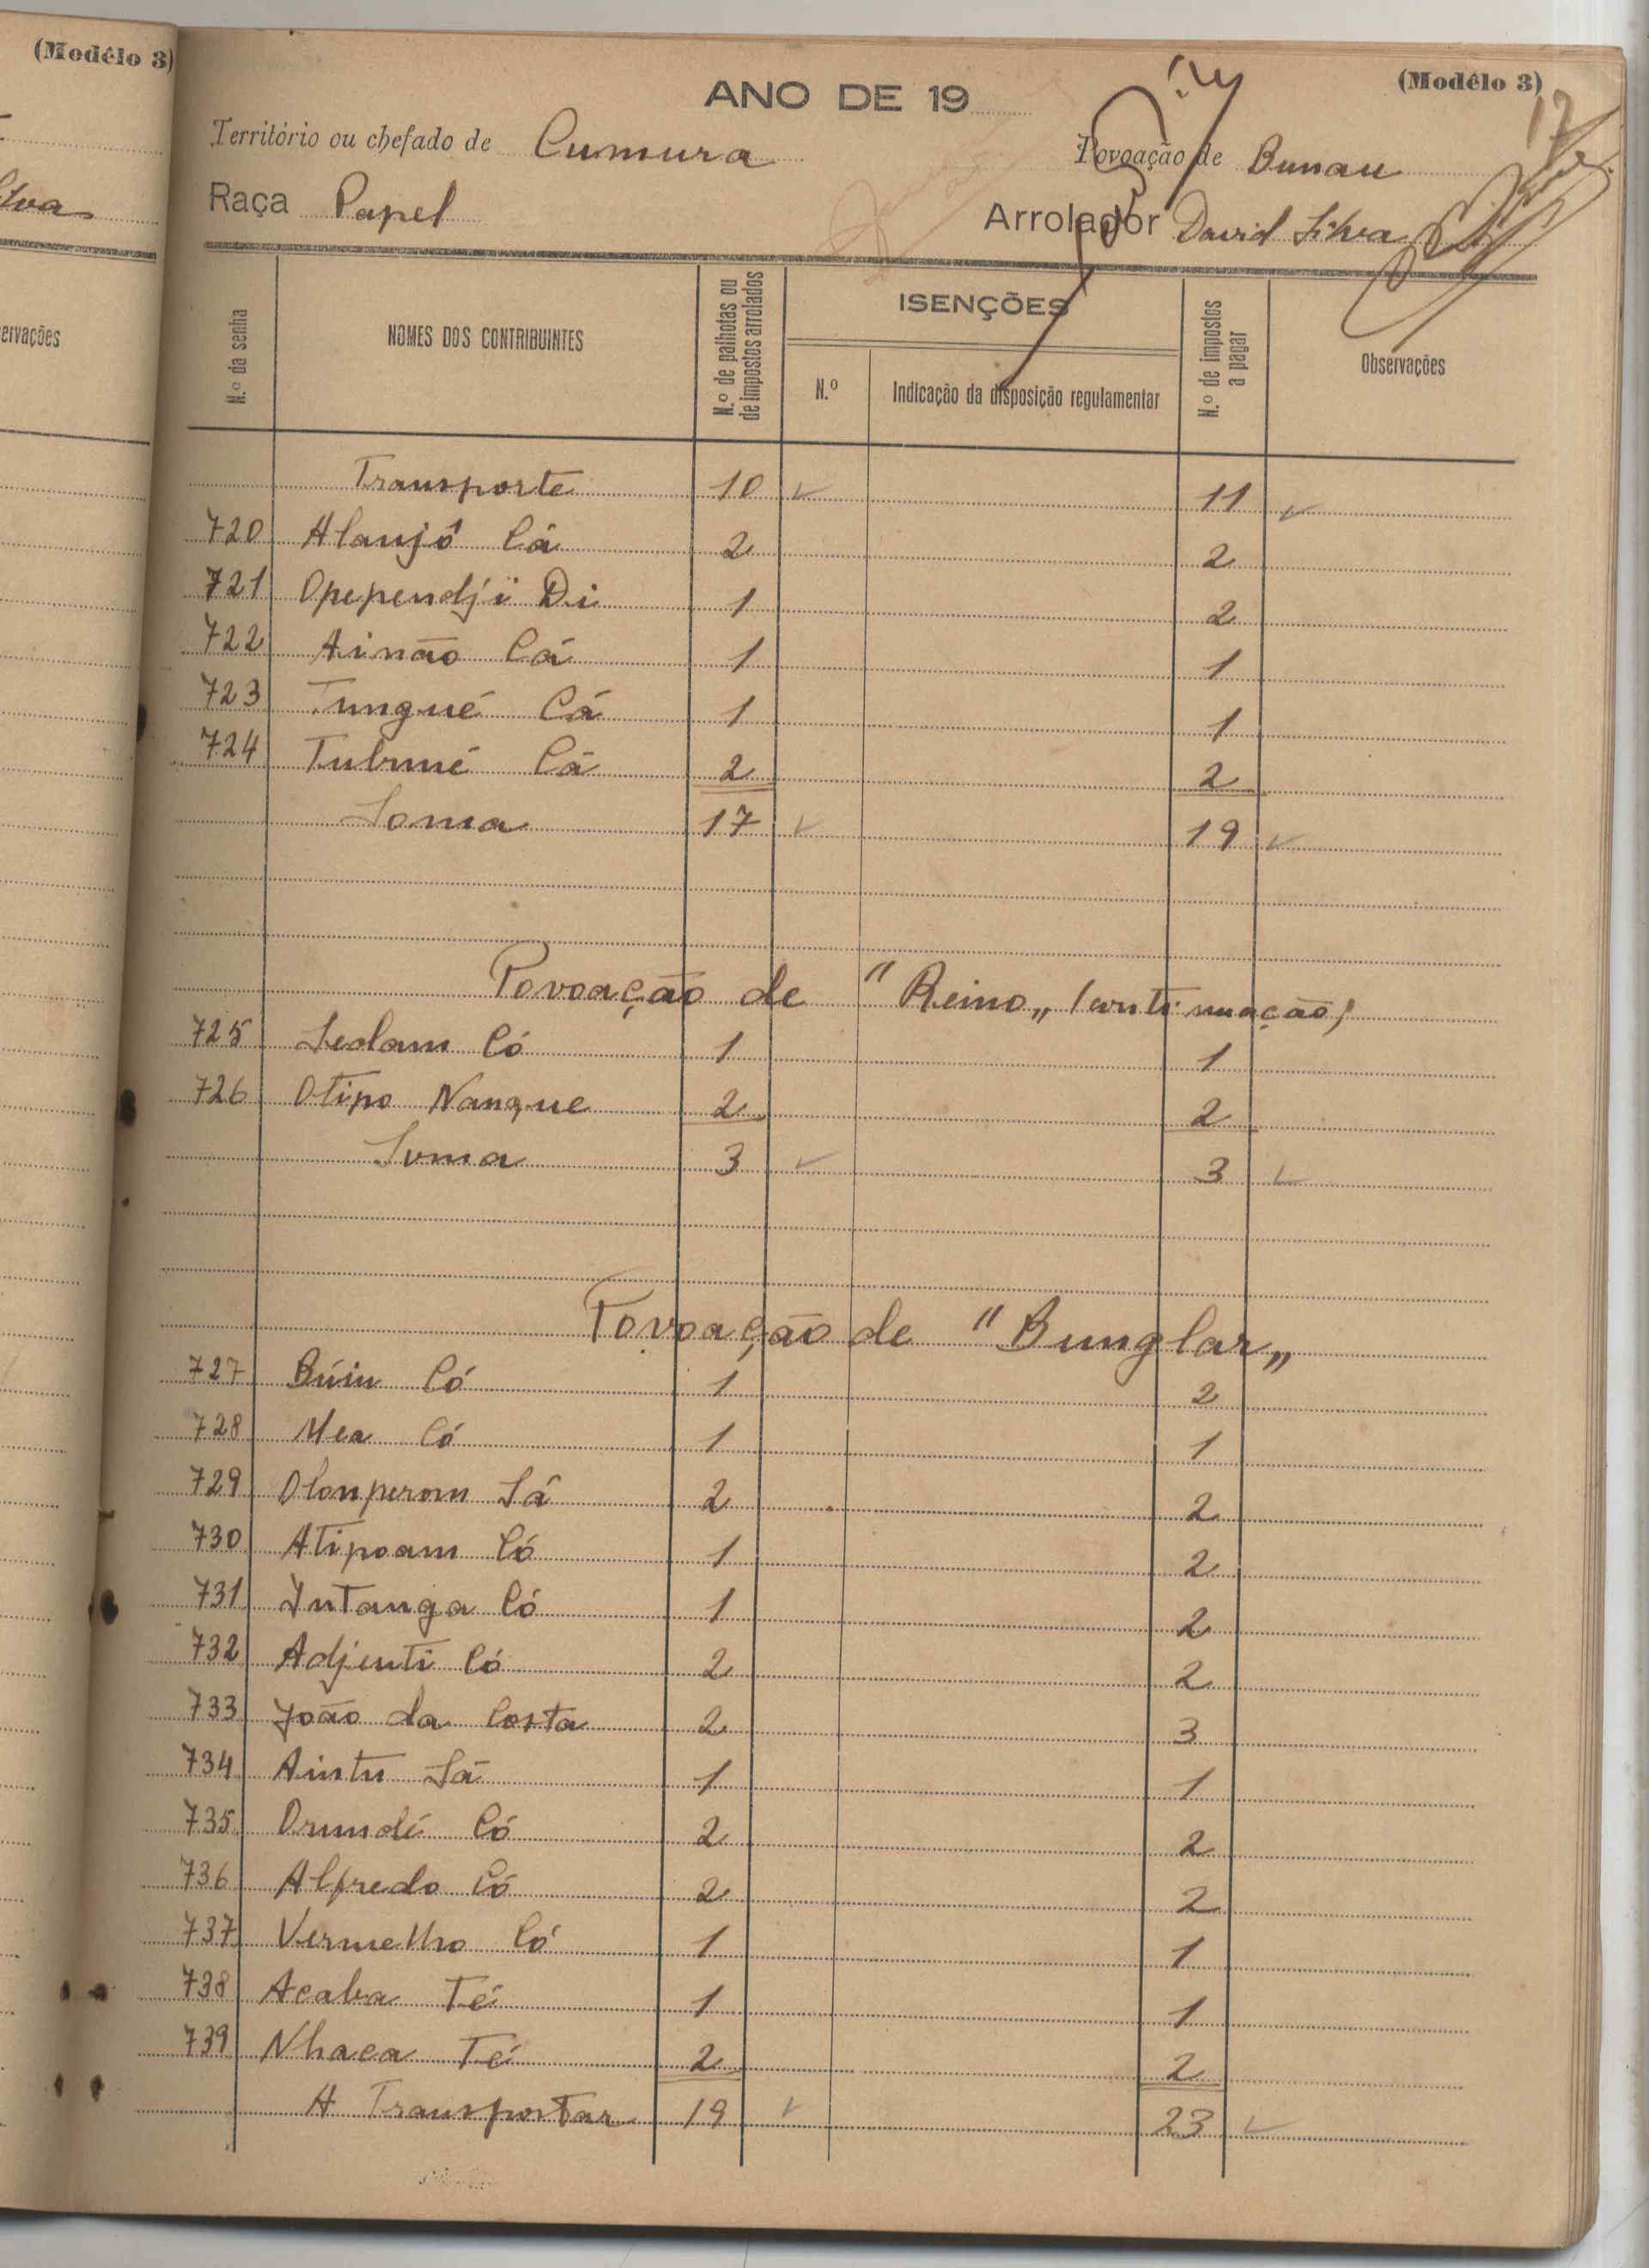 (Modêlo 3)
(Modêlo 3)
17
ANO DE 19
Território ou chefado de Cumura Povoação de Bunau
Raça Papel Arrolador David Silva
Silva
ervações
N.º da senha NOMES DOS CONTRIBUINTES N.º de palhotas ou de impostos arrolados ISENÇÕES N.º de impostos a pagar Observações
N.º Indicação da disposição regulamentar
Transporte 10 11
720 Alanjó Cá 2 2
721 Opependji Di 1 2
722 Ainão Cá 1 1
723 Tungué Cá 1 1
724 Tubmé Cá 2 2
Soma 17 19
Povoação de "Reino„ (continuação)
725 Seolam Có 1 1
726 Otipo Nanque 2 2
Soma 3 3
Povoação de "Bunglar„
727 Búiu Có 1 2
728 Mea Có 1 1
729 Olonperom Sá 2 2
730 Atipoam Có 1 2
731 Intanga Có 1 2
732 Adjenti Có 2 2
733 João da Costa 2 3
734 Aintu Sá 1 1
735 Orundé Có 2 2
736 Alfredo Có 2 2
737 Vermelho Có 1 1
738 Acaba Té 1 1
739 Nhaca Té 2 2
A Transportar 19 23